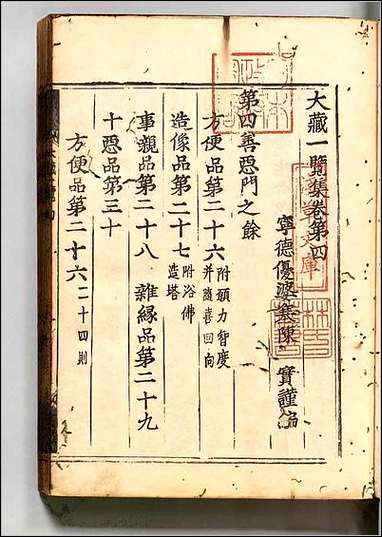 大藏一覽集卷第四
寧德優婆塞陳 實謹編
第四善惡門之餘
方便品第二十六 附願力智度
并隨喜回向
造像品第二十七 附浴佛
造塔
事親品第二十八 雜緣品第二十九
十惡品第三十
方便品第二十六 二十四則